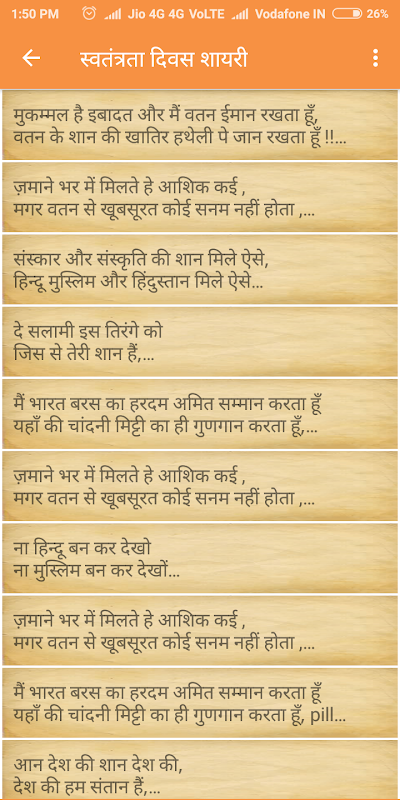 1:50 PM Jio 4G 4G VoLTE Vodafone IN 26%
स्वतंत्रता दिवस शायरी
मुकम्मल है इबादत और मैं वतन ईमान रखता हूँ,
वतन के शान की खातिर हथेली पे जान रखता हूँ !!...
ज़माने भर में मिलते हे आशिक कई ,
मगर वतन से खूबसूरत कोई सनम नहीं होता ,...
संस्कार और संस्कृति की शान मिले ऐसे,
हिन्दू मुस्लिम और हिंदुस्तान मिले ऐसे...
दे सलामी इस तिरंगे को
जिस से तेरी शान हैं,...
मैं भारत बरस का हरदम अमित सम्मान करता हूँ
यहाँ की चांदनी मिट्टी का ही गुणगान करता हूँ,...
ज़माने भर में मिलते हे आशिक कई ,
मगर वतन से खूबसूरत कोई सनम नहीं होता ,...
ना हिन्दू बन कर देखो
ना मुस्लिम बन कर देखों...
ज़माने भर में मिलते हे आशिक कई ,
मगर वतन से खूबसूरत कोई सनम नहीं होता ,...
मैं भारत बरस का हरदम अमित सम्मान करता हूँ
यहाँ की चांदनी मिट्टी का ही गुणगान करता हूँ, pill...
आन देश की शान देश की,
देश की हम संतान हैं,...